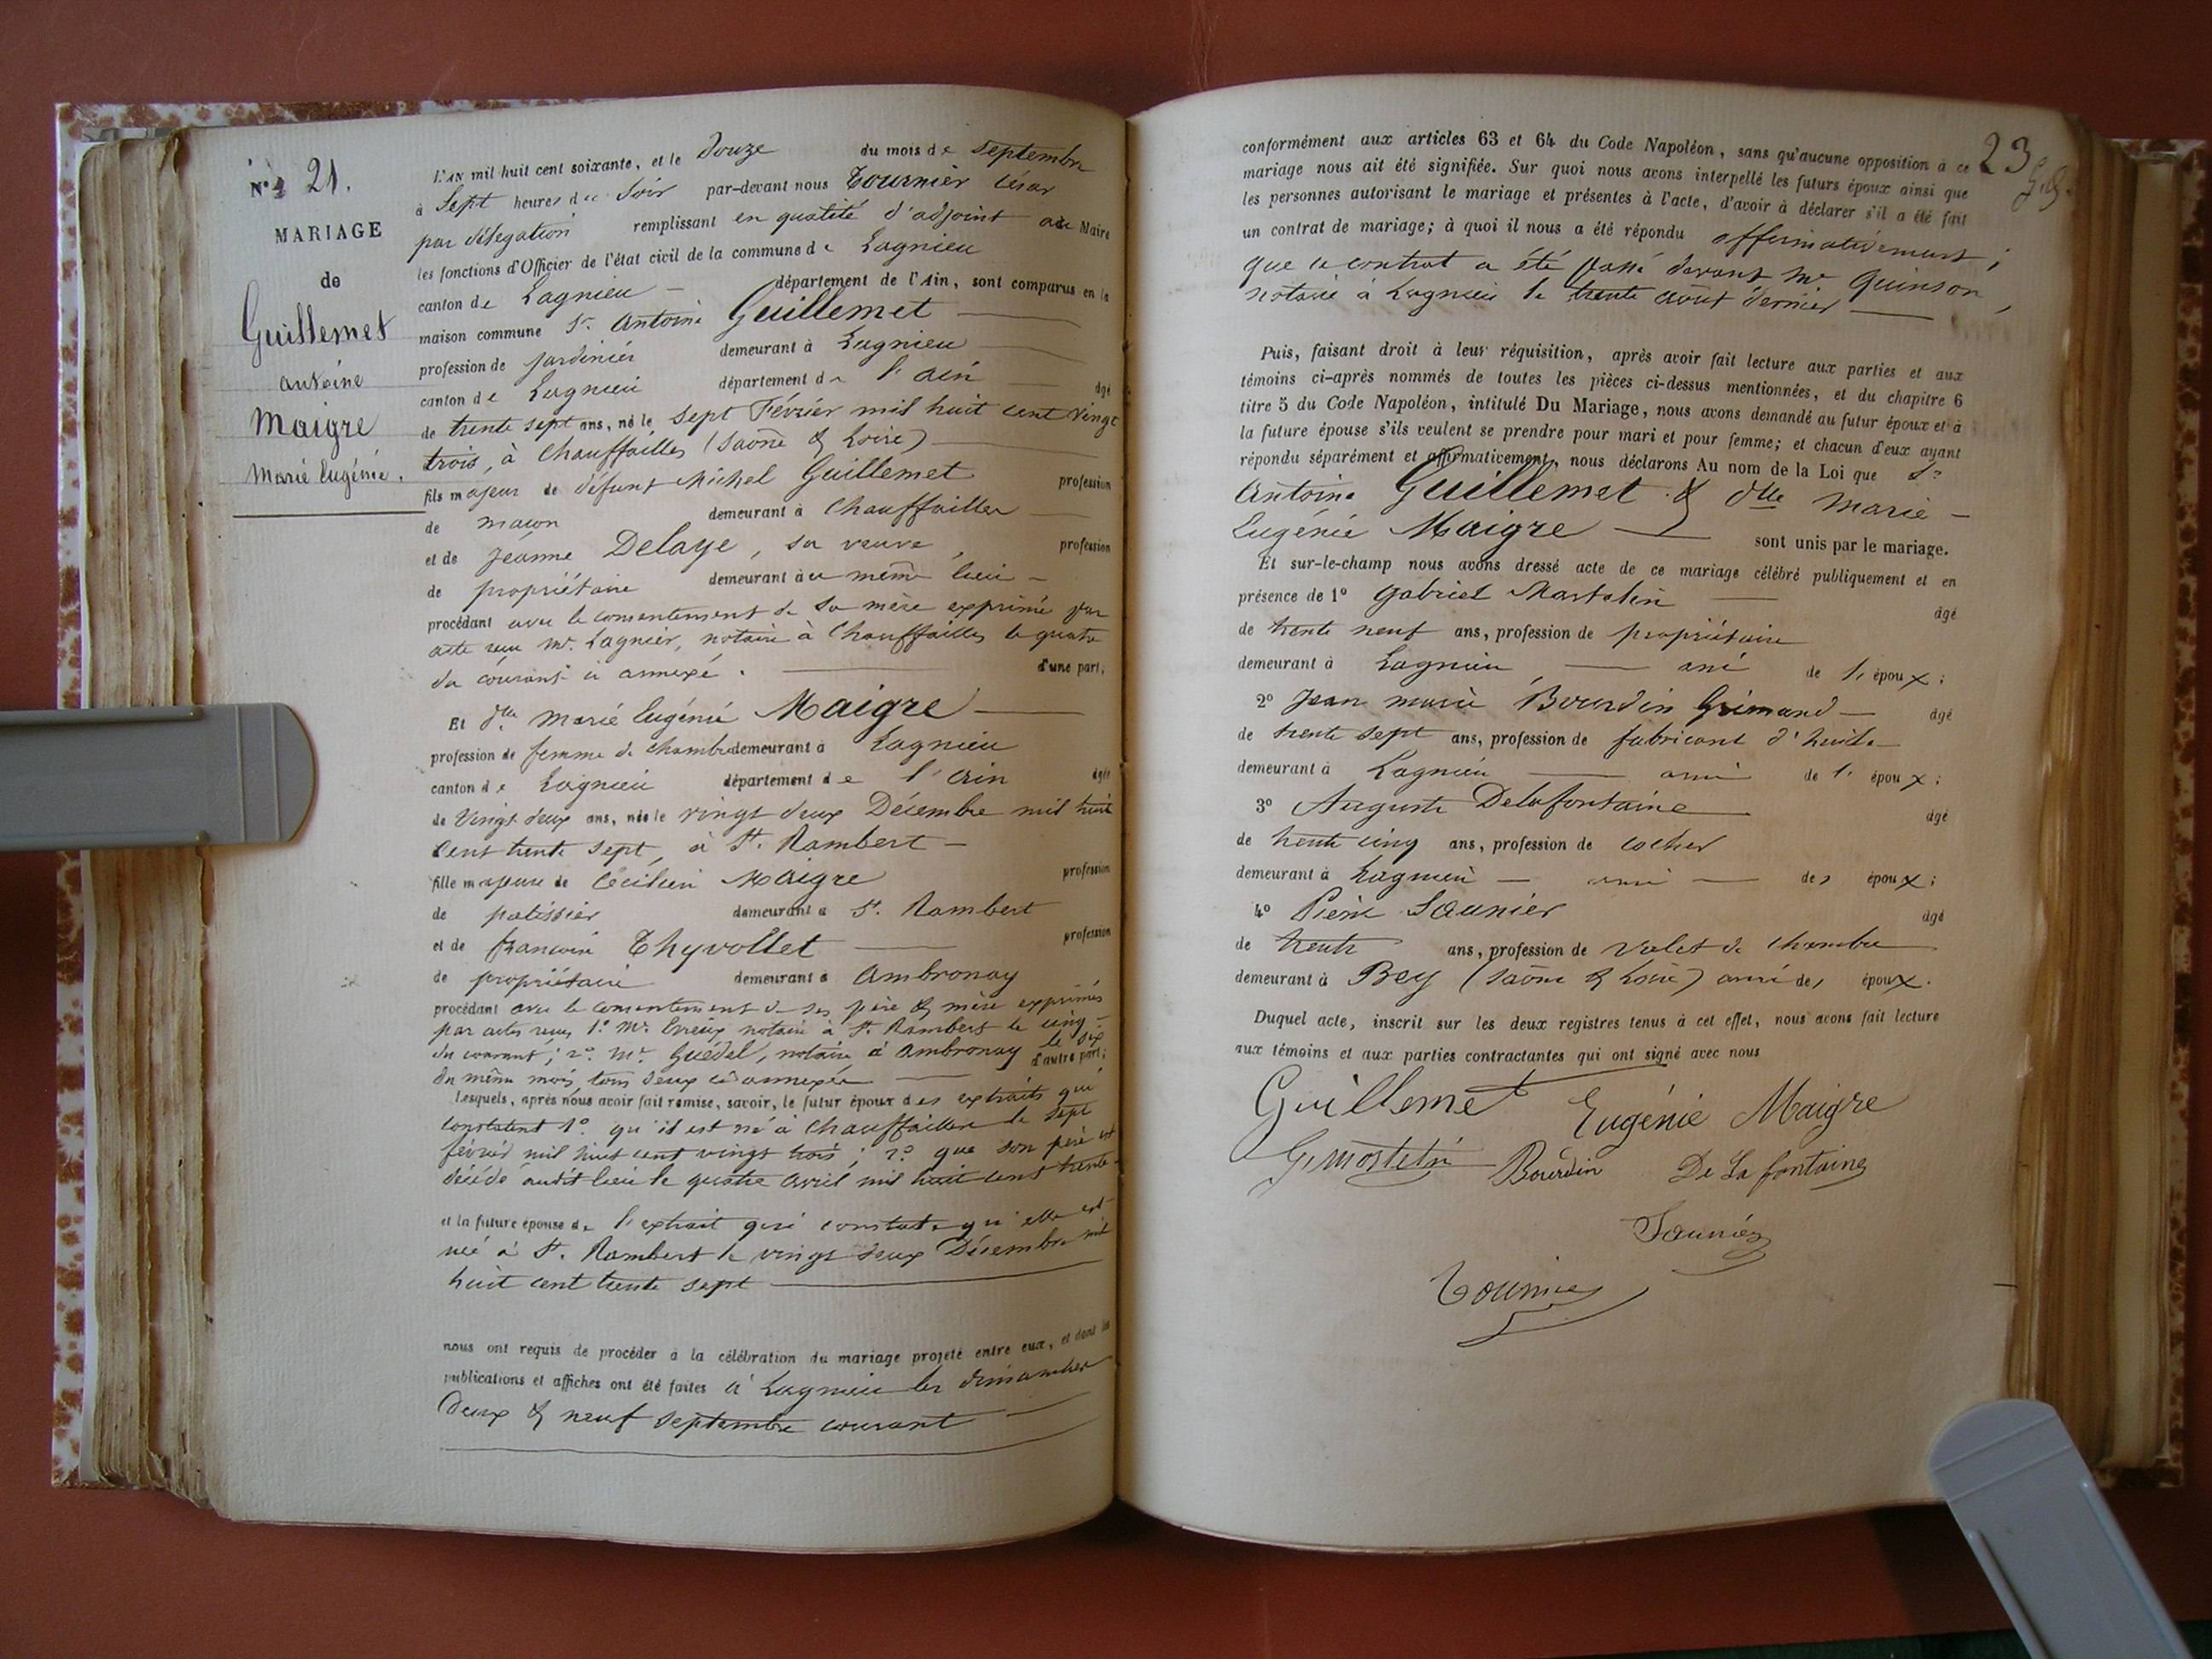 N° 21.
MARIAGE
de
Guillemet
antoine
Maigre
Marie Eugénie.
L'AN mil huit cent soixante, et le Douze du mois de Septembre
à Sept heures du Soir par-devant nous Tournier César
par délégation remplissant en qualité d'adjoint au Maire
les fonctions d'Officier de l'état civil de la commune de Lagnieu
canton de Lagnieu département de l'Ain, sont comparus en la
maison commune Sr. Antoine Guillemet
profession de jardinier demeurant à Lagnieu
canton de Lagnieu département de l'ain âgé
de trente sept ans, né le Sept Février mil huit cent vingt
trois, à Chauffailles (Saône & Loire)
fils majeur de défunt Michel Guillemet profession
de maçon demeurant à Chauffailles
et de Jeanne Delaye, sa veuve, profession
de propriétaire demeurant au même lieu
procédant avec le consentement de sa mère exprimé par
acte reçu Me. Lagnier, notaire à Chauffailles le quatre
du courant ci annexé. d'une part,
Et Dlle Marie Eugénie Maigre
profession de femme de chambre demeurant à Lagnieu
canton de Lagnieu département de l'Ain âgée
de Vingt deux ans, née le vingt deux Décembre mil huit
cent trente sept, à St. Rambert
fille majeure de Cécilien Maigre profession
de patissier demeurant à St. Rambert
et de françoise Thyvollet profession
de propriétaire demeurant à Ambronay
procédant avec le consentement de ses père & mère exprimés
par actes reçus 1° Me. notaire à St. Rambert le cinq
du courant; 2° Me. Guédel, notaire à Ambronay le six
du même mois, tous deux ci annexés d'autre part;
Lesquels, après nous avoir fait remise, savoir, le futur époux des extraits qui
constatent 1° qu'il est né à Chauffailles le sept
février mil huit cent vingt trois; 2° que son père est
décédé audit lieu le quatre avril mil huit cent trente
et la future épouse de l'extrait qui constate qu'elle est
née à St. Rambert le vingt deux Décembre mil
huit cent trente sept
nous ont requis de procéder à la célébration du mariage projeté entre eux, et dont les
publications et affiches ont été faites à Lagnieu les dimanches
deux & neuf septembre courant
23
conformément aux articles 63 et 64 du Code Napoléon, sans qu'aucune opposition à ce
mariage nous ait été signifiée. Sur quoi nous avons interpellé les futurs époux ainsi que
les personnes autorisant le mariage et présentes à l'acte, d'avoir à déclarer s'il a été fait
un contrat de mariage; à quoi il nous a été répondu affirmativement;
que le contrat a été passé devant Me Quinson,
notaire à Lagnieu le trente août dernier
Puis, faisant droit à leur réquisition, après avoir fait lecture aux parties et aux
témoins ci-après nommés de toutes les pièces ci-dessus mentionnées, et du chapitre 6
titre 5 du Code Napoléon, intitulé Du Mariage, nous avons demandé au futur époux et à
la future épouse s'ils veulent se prendre pour mari et pour femme; et chacun d'eux ayant
répondu séparément et affirmativement, nous déclarons Au nom de la Loi que Sr
Antoine Guillemet & Dlle Marie
Eugénie Maigre sont unis par le mariage.
Et sur-le-champ nous avons dressé acte de ce mariage célébré publiquement et en
présence de 1° Gabriel Mastalin âgé
de trente neuf ans, profession de propriétaire
demeurant à Lagnieu, ami de l'époux;
2° Jean marie Bourdin Grimaud âgé
de trente sept ans, profession de fabricant d'huile
demeurant à Lagnieu ami de l'époux;
3° Auguste Delafontaine âgé
de trente cinq ans, profession de cocher
demeurant à Lagnieu ami des époux;
4° Pierre Saunier âgé
de trente ans, profession de valet de chambre
demeurant à Bey (Saône & Loire) ami des époux.
Duquel acte, inscrit sur les deux registres tenus à cet effet, nous avons fait lecture
aux témoins et aux parties contractantes qui ont signé avec nous
Guillemet Eugénie Maigre
Bourdin De La fontaine
Saunier
Tournier